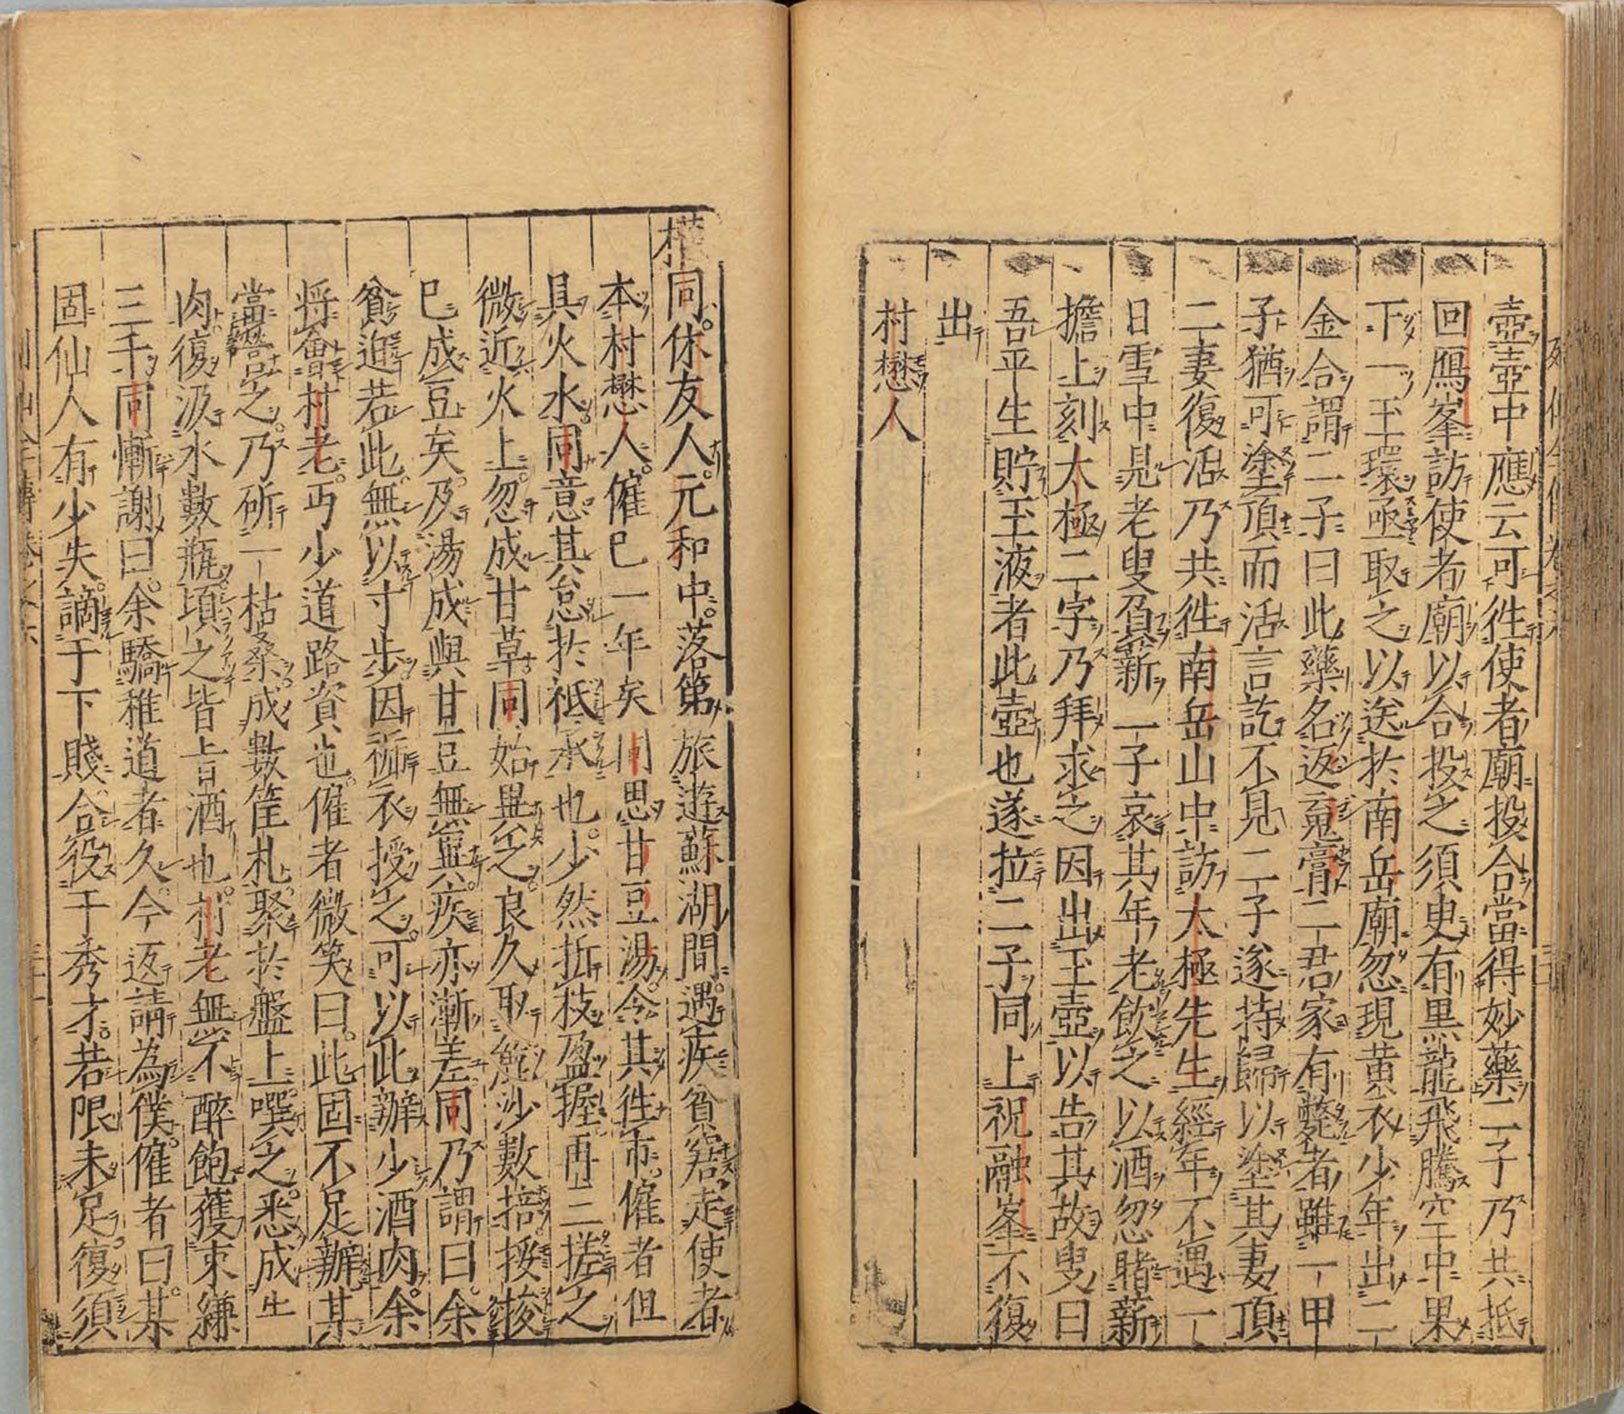 壺壺中應云可徃使者廟投合當得妙藥二子乃共抵
回鴈峯訪使者廟以合投之須臾有黒龍飛騰空中果
下一玉環亟取之以送於南岳廟忽現黄衣少年出二
金合謂二子曰此藥名返䰟膏二君家有斃者雖一甲
子猶可塗頂而活言訖不見二子遂持歸以塗其妻頂
二妻復活乃共徃南岳山中訪太極先生經年不遇一
日雪中見老叟負薪二子哀其年老飲之以酒忽睹薪
擔上刻太極二字乃拜求之因出玉壺以告其故叟曰
吾平生貯玉液者此壺也遂拉二子同上祝融峯不復
出
村懋人
權同休友人元和中落第旅遊蘇湖間遇疾貧窘走使者
本村懋人傭已一年矣同思甘豆湯令其徃市傭者但
具火水同意其怠於祗承也少然折枝盈握再三搓之
微近火上忽成甘草同始異之良久取麄沙數掊挼捘
已成豆矣及湯成與甘豆無異疾亦漸差同乃謂曰余
貧迍若此無以寸步因褫衣授之可以此辦少酒肉余
將會村老丐少道路資也傭者微笑曰此固不足辦某
當營之乃斫一枯桑成數筐札聚於盤上噀之悉成牛
肉復汲水數瓶頃之皆旨酒也村老無不醉飽獲束縑
三千同慚謝曰余驕稚道者久今返請為僕傭者曰某
固仙人有少失謫于下賤合役于秀才若限未足復須